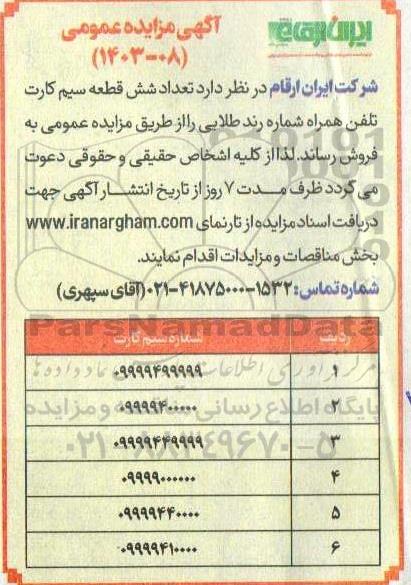 ایران ارقام
آگهی مزایده عمومی
(۱۴۰۳-۰۸)
شرکت ایران ارقام در نظر دارد تعداد شش قطعه سیم کارت
تلفن همراه شماره رند طلایی را از طریق مزایده عمومی به
فروش رساند. لذا از کلیه اشخاص حقیقی و حقوقی دعوت
می گردد ظرف مدت ۷ روز از تاریخ انتشار آگهی جهت
دریافت اسناد مزایده از تارنمای www.iranargham.com
بخش مناقصات و مزایدات اقدام نمایند.
شماره تماس: ۱۵۳۲-۰۲۱-۴۱۸۷۵۰۰۰ (آقای سپهری)
ParsNamadData
ردیف شماره سیم کارت
۱ ۰۹۹۹۹۴۹۹۹۹۹
۲ ۰۹۹۹۹۴۰۰۰۰۰
۳ ۰۹۹۹۹۴۴۹۹۹۹
۴ ۰۹۹۹۹۰۰۰۰۰۰
۵ ۰۹۹۹۹۴۴۰۰۰۰
۶ ۰۹۹۹۹۴۱۰۰۰۰
پایگاه اطلاع رسانی مناقصه و مزایده
۰۲۱-۸۸۳۴۹۶۷۰-۵